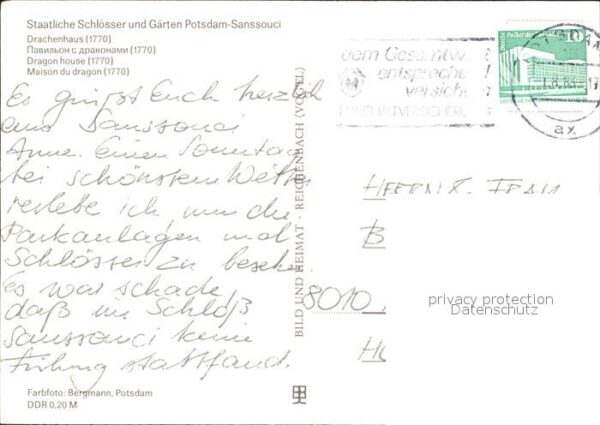 Staatliche Schlösser und Gärten Potsdam-Sanssouci
Drachenhaus (1770)
Павильон с драконами (1770)
Dragon house (1770)
Maison du dragon (1770)
Es grüßt Euch herzlich
aus Sanssouci
Anne. Einen Sonntag
bei schönstem Wetter
erlebe ich, um die
Parkanlagen und
Schlösser zu besehen.
Es war schade,
daß im Schloß
Sanssouci keine
Führung stattfand.
Farbfoto: Bergmann, Potsdam
DDR 0,20 M
BILD UND HEIMAT · REICHENBACH (VOGTL)
dem Gesamtwert
entsprechend
versichern
HAUSHALTVERSICHERUNG
10
ax
HERRN & FRAU
B
8010
H
privacy protection
Datenschutz